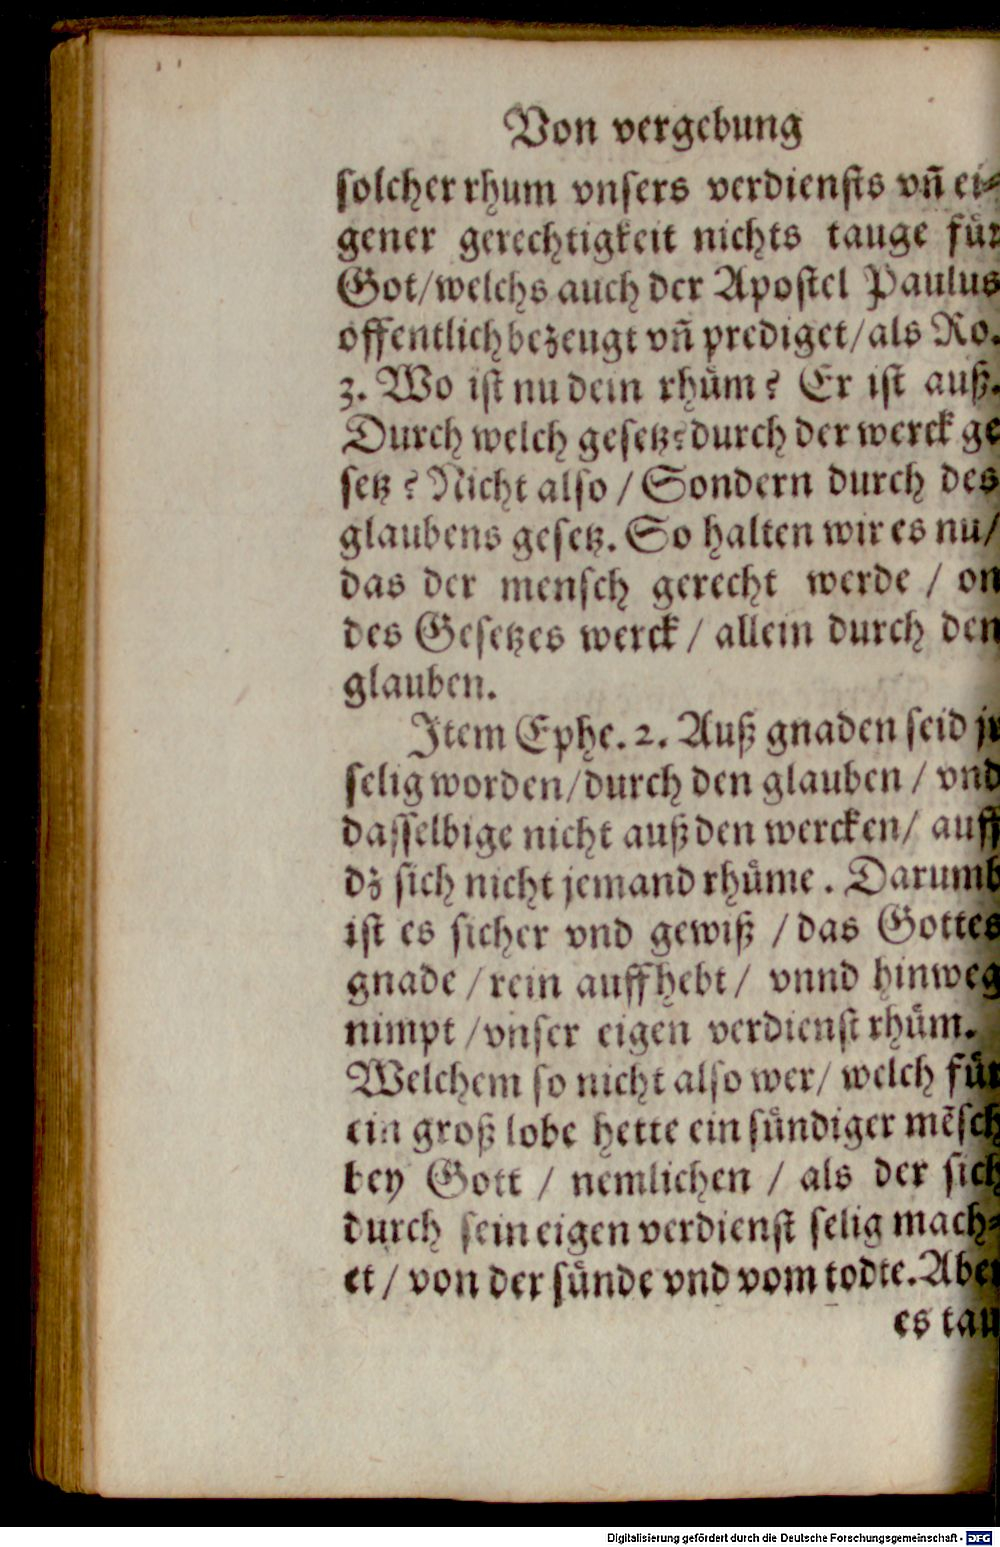 Von vergebung
solcher rhum vnsers verdiensts vn̄ ei⸗
gener gerechtigkeit nichts tauge fuͤr
Got/welchs auch der Apostel Paulus
offentlich bezeugt vn̄ prediget/als Ro.
3. Wo ist nu dein rhuͤm? Er ist auß.
Durch welch gesetz? durch der werck ge
setz? Nicht also / Sondern durch des
glaubens gesetz. So halten wir es nu/
das der mensch gerecht werde / on
des Gesetzes werck / allein durch den
glauben.
Item Ephe. 2. Auß gnaden seid jr
selig worden/durch den glauben / vnd
dasselbige nicht auß den wercken/ auff
dz sich nicht jemand rhuͤme. Darumb
ist es sicher vnd gewiß / das Gottes
gnade / rein auffhebt / vnnd hinweg
nimpt / vnser eigen verdienst rhuͤm.
Welchem so nicht also wer/ welch fuͤr
ein groß lobe hette ein suͤndiger mẽsch
bey Gott / nemlichen / als der sich
durch sein eigen verdienst selig mach⸗
et / von der suͤnde vnd vom todte. Aber
es tau
Digitalisierung gefördert durch die Deutsche Forschungsgemeinschaft - DFG